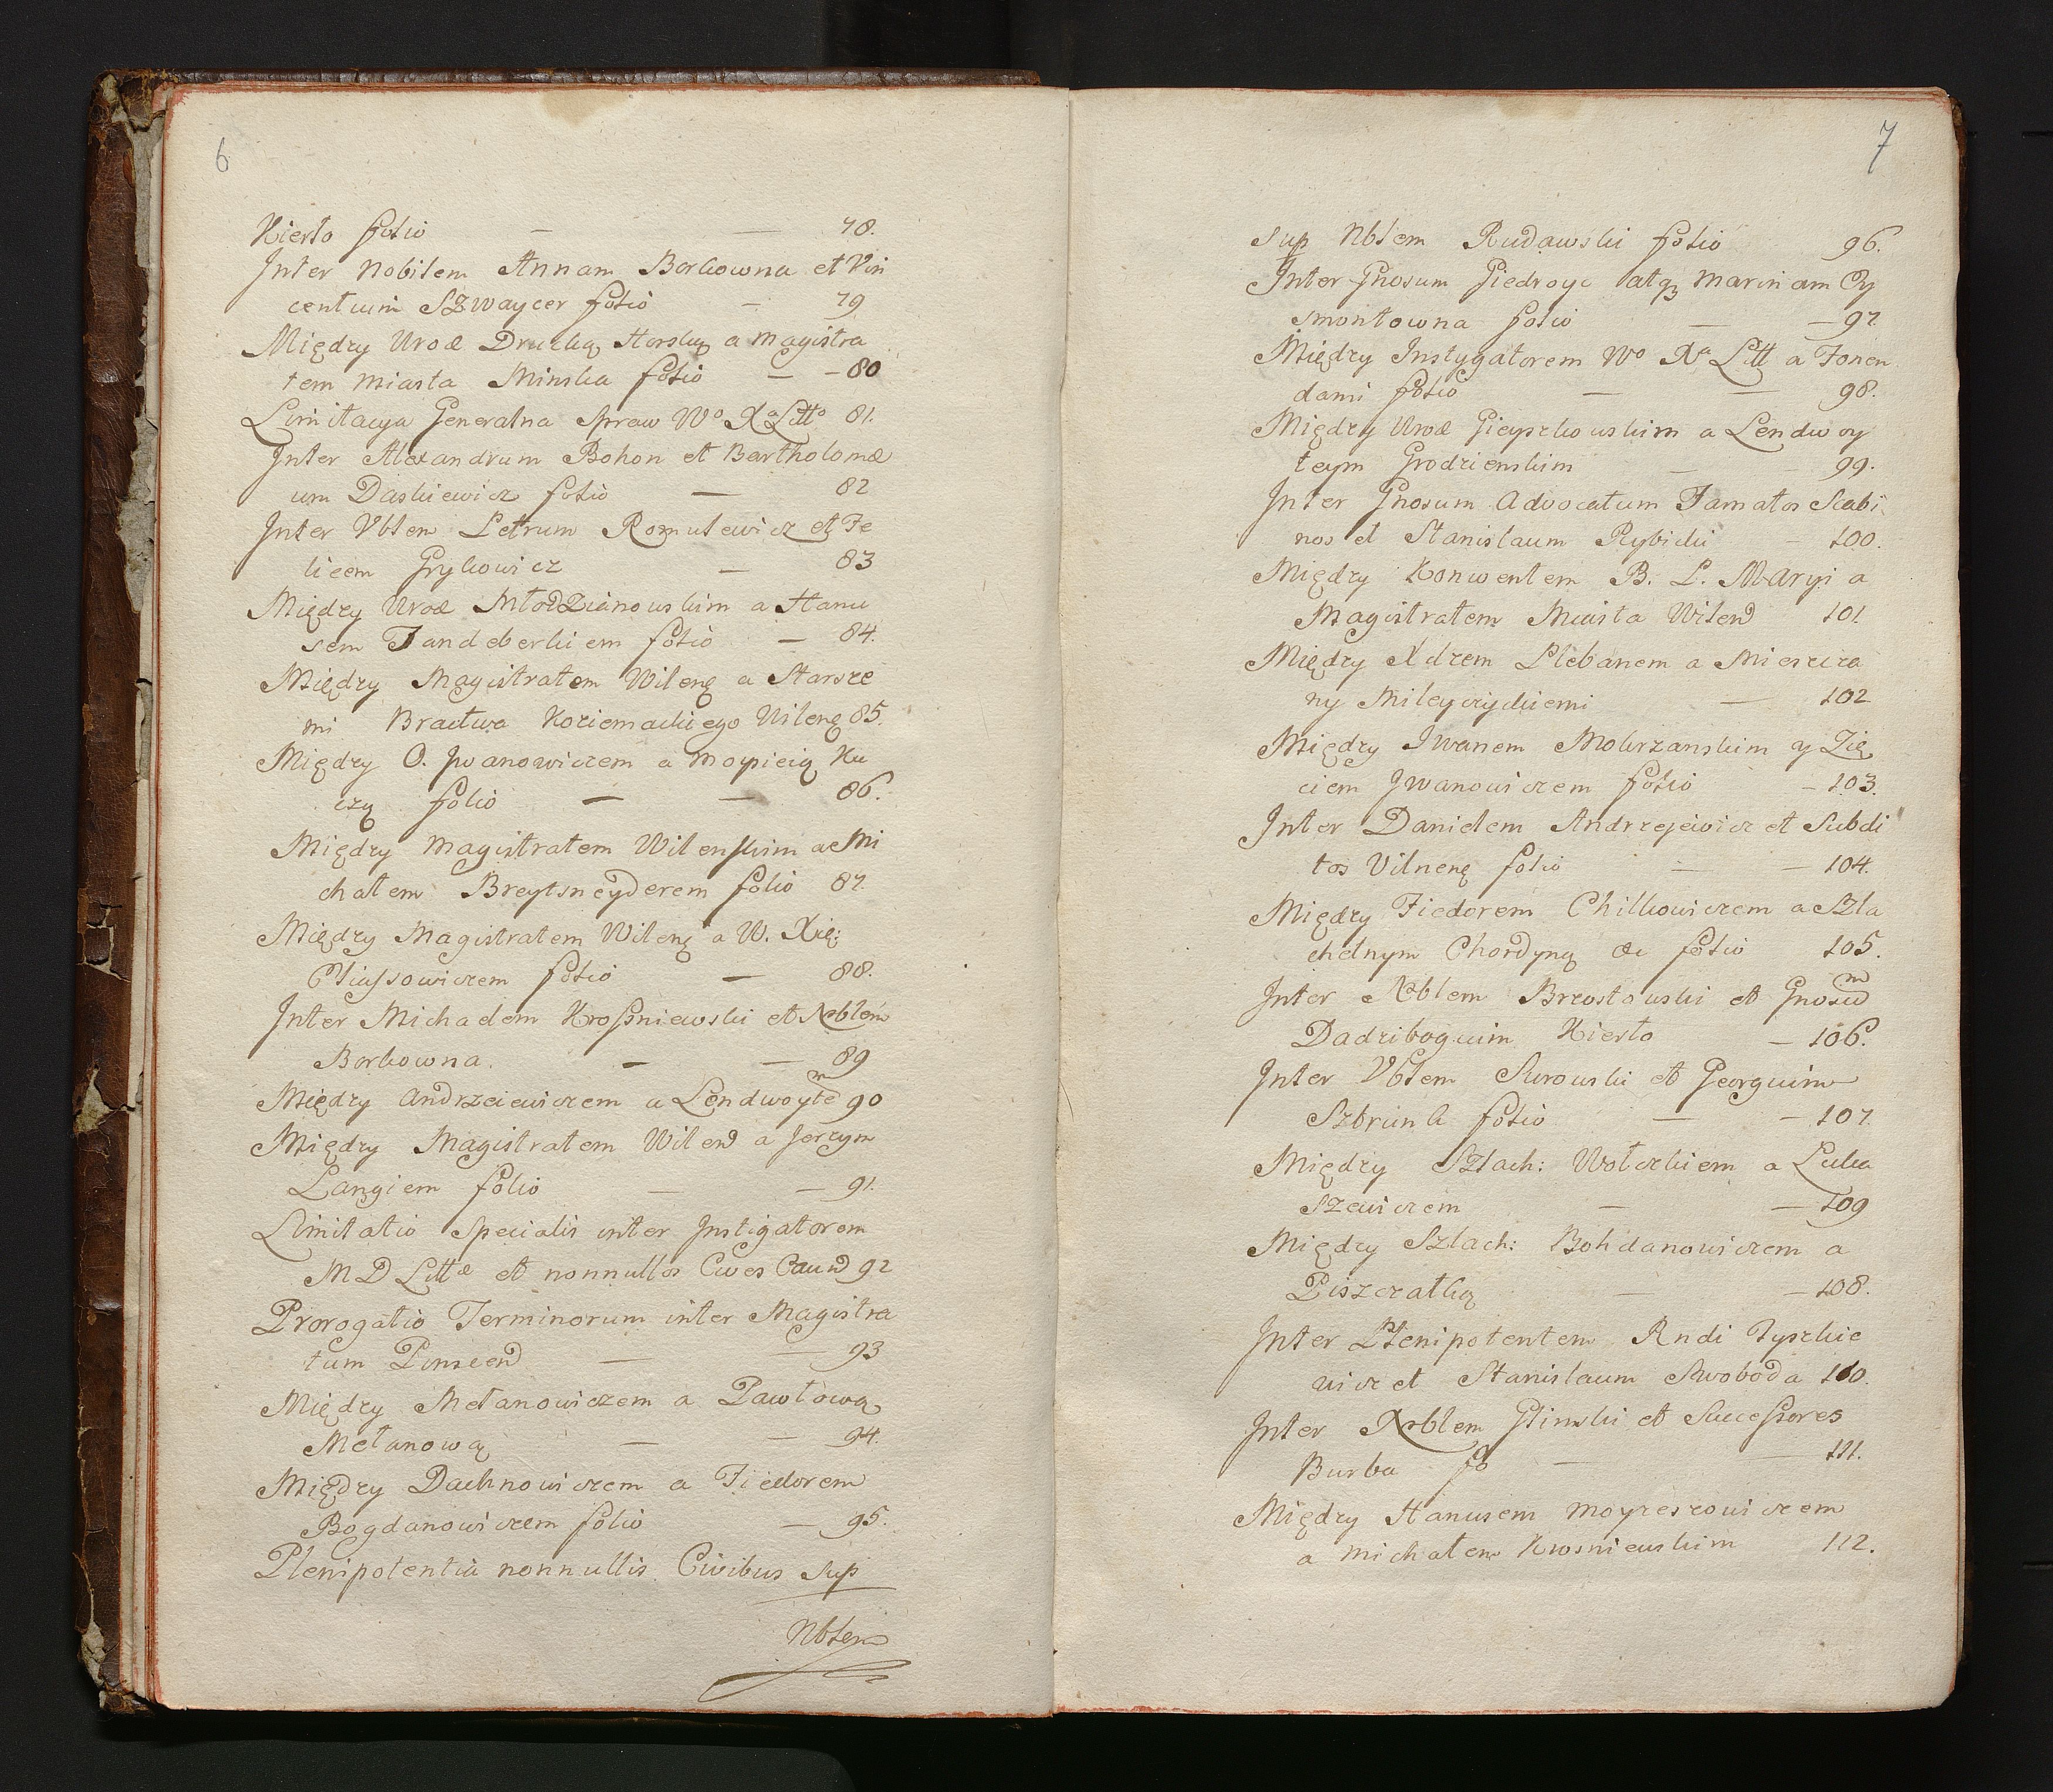 6
Kierło folio — — 78.
Inter Nobilem Annam Borkowna et Vin
centium Szwaycer folio — 79
Między Urod Drucką Horską a Magistra
tem Miasta Mińska folio — — 80
Limitacya Generalna Spraw Wo Xa Litto 81.
Inter Alexandrum Bohon et Bartholomæ
um Daszkiewicz folio — 82
Inter Vblem Petrum Romulewicz et Fe
licem Grykowicz — 83
Między Urod Młodzianowskim a Hanu
sem Fandeberkiem folio — 84.
Między Magistratem Wileng a Starsze
mi Bractwa Koziemackiego Wileng 85.
Między O. Jwanowiczem a Ku
czą folio — — 86.
Między Magistratem Wilenskim a Mi
chałem Breytsneyderem folio 87.
Między Magistratem Wileng a W. Xię:
folio — 88.
Inter Michaelem Krosniewski et Nblem
Borkowna. — — 89
Między Andrzeiewiczem a Lendwoytem 90
Między Magistratem Wilend a Jerzym
Langiem folio — — 91.
Limitatio Specialis inter Instigatorem
M D Littæ et nonnullos Cives Caund 92
Prorogatio Terminorum inter Magistra
tum Pinscend — — 93
Między Mełanowiczem a Pawłową
Mełanową — — 94.
Między Dachnowiczem a Fiedorem
Bogdanowiczem folio — 95.
Plenipotentia nonnullis Civibus Sup
Nblem
7
Sup Nblem Rudawski folio 96.
Inter Gnosum Giedroyc atq3 Mariniam Cy
smontowna folio — — 97.
Między Instygatorem Wo Xa Litt a Fonen
dami folio — — 98.
Między Urod Gieyszkowskim a Lendwoy
teym Grodzienskim — 99.
Inter Gnosum Advocatum Famatos Scabi
nos et Stanislaum Rybicki — 100.
Między Konwentem B. P. Maryi a
Magistratem Miasta Wilend 101
Między Xdzem Plebanem a Mieszcza
ny Mileyczyckiemi — 102
Między Iwanem Mokrzanskim y Zię
ciem Jwanowiczem folio — 103.
Inter Danielem Andrzejewicz et Subdi
tos Vilneng folio — — 104.
Między Fiedorem Chilkowiczem a Szla
chetnym Chordyną &c folio 105.
Inter Nblem Brzostowski et Gnosum
Dadzibogium Kierło — 106.
Inter Vblem Surowski et Georgium
Szbrink folio — — 107.
Między Szlach: Wołczkiem a Łuka
szewiczem — — 109
Między Szlach: Bohdanowiczem a
Piszczatką — — 108.
Inter Plenipotentem Rndi Tyszkie
wicz et Stanislaum Swoboda 110.
Inter Nblem Glinski et Successores
Burba fo — — 111.
Między Hanusem Moyzeszowiczem
a Michałem Krosniewskim 112.